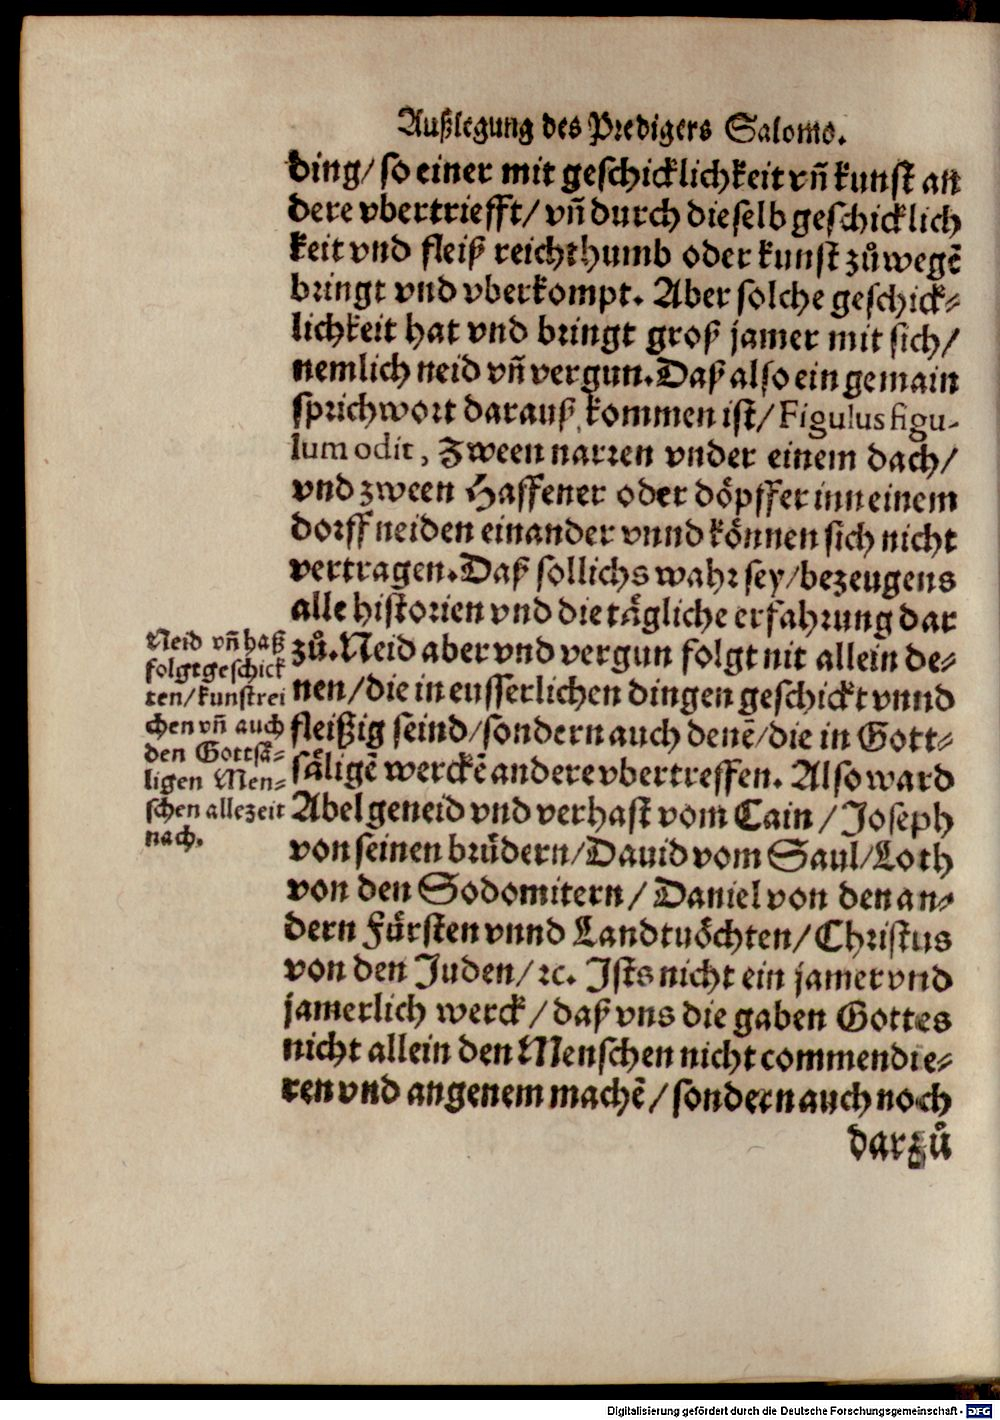 Außlegung des Predigers Salomo.
ding/ so einer mit geschicklichkeit vñ kunst an
dere vbertriefft/ vñ durch dieselb geschicklich
keit vnd fleiß reichthumb oder kunst zůwegẽ
bringt vnd vberkompt. Aber solche geschick-
lichkeit hat vnd bringt groß jamer mit sich/
nemlich neid vñ vergun. Daß also ein gemain
sprichwort darauß kommen ist/ Figulus figu-
lum odit, Zween narren vnder einem dach/
vnd zween Haffener oder döpffer inn einem
dorff neiden einander vnnd können sich nicht
vertragen. Daß sollichs wahr sey/ bezeugens
alle historien vnd die tägliche erfahrung dar
zů. Neid aber vnd vergun folgt nit allein de-
nen/ die in eusserlichen dingen geschickt vnnd
fleißig seind/ sondern auch denẽ/ die in Gott-
säligẽ werckẽ andere vbertreffen. Also ward
Abel geneid vnd verhast vom Cain/ Joseph
von seinen brüdern/ Dauid vom Saul/ Loth
von den Sodomitern/ Daniel von den an-
dern Fürsten vnnd Landtuöchten/ Christus
von den Juden/ ꝛc. Ists nicht ein jamer vnd
jamerlich werck/ daß vns die gaben Gottes
nicht allein den Menschen nicht commendie-
ren vnd angenem machẽ/ sondern auch noch
darzů
Neid vñ haß
folgt geschick
ten/ kunstrei
chen vñ auch
den Gottsä-
ligen Men-
schen allezeit
nach.
Digitalisierung gefördert durch die Deutsche Forschungsgemeinschaft - DFG